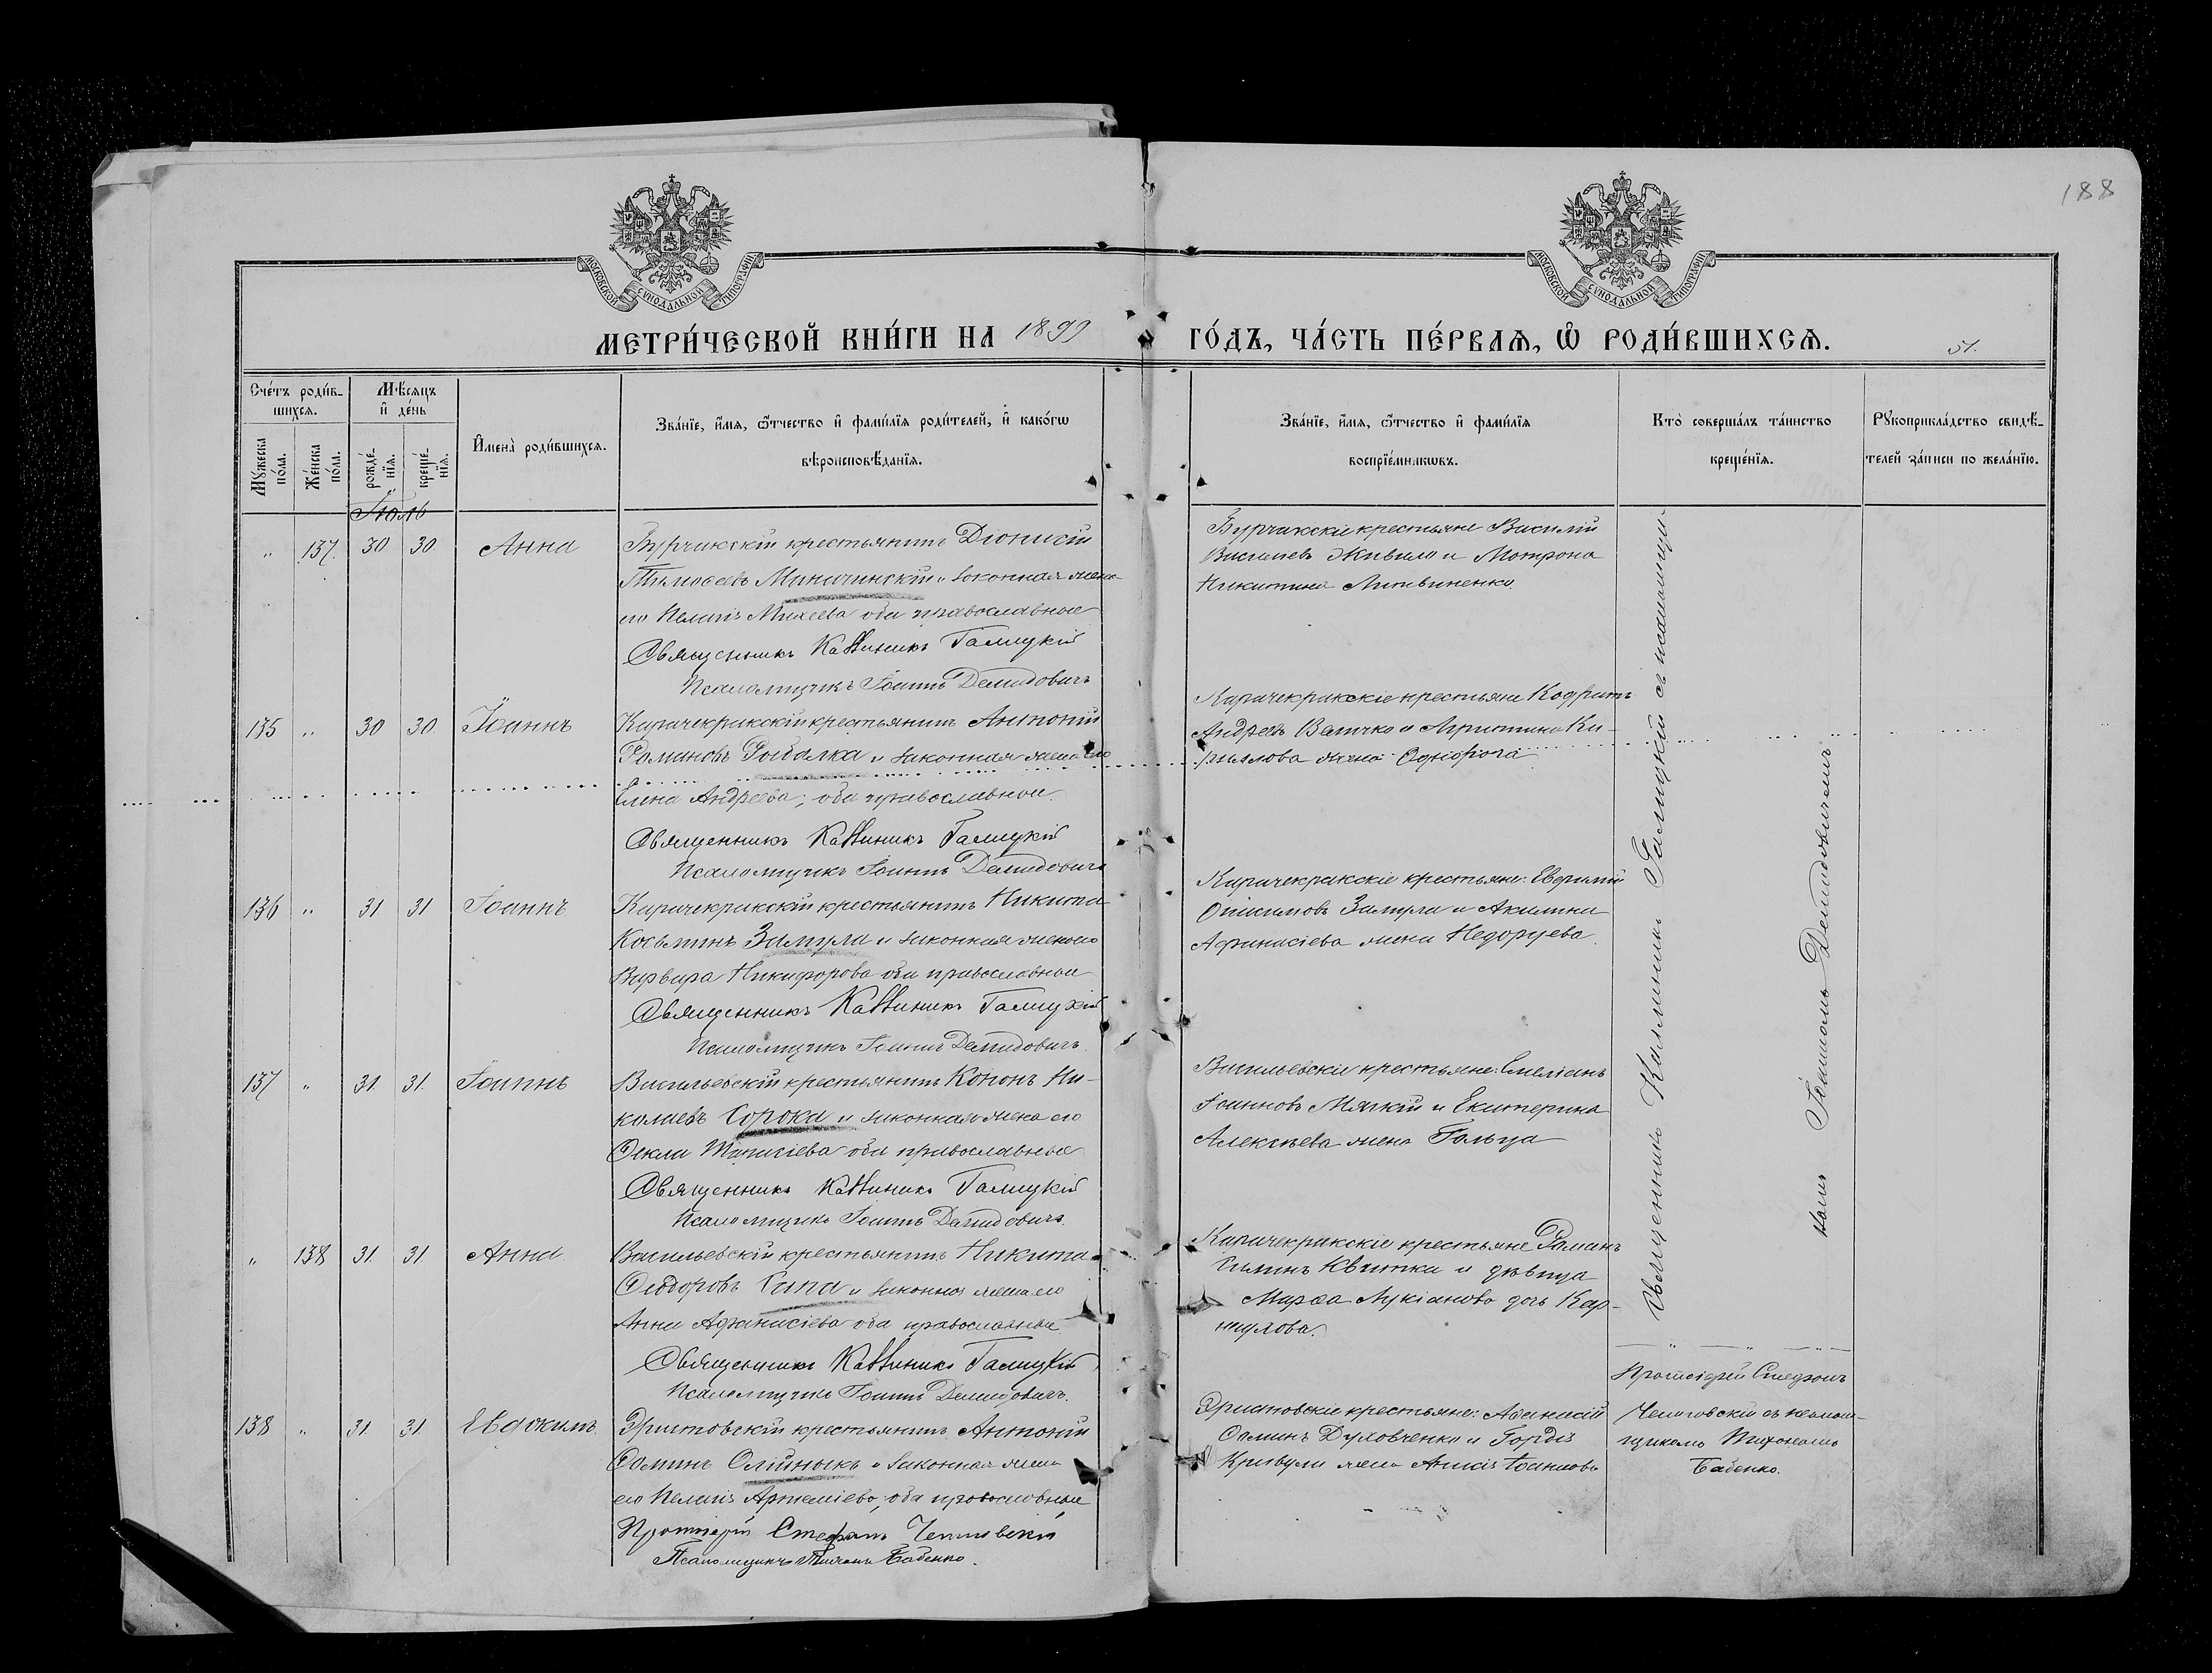 188
МОСКОВСКОЙ СУНОДАЛЬНОЙ ТИПОГРАФІИ
МОСКОВСКОЙ СУНОДАЛЬНОЙ ТИПОГРАФІИ
МЕТРИ́ЧЕСКОЙ КНИ́ГИ НА 1899 ГО́ДЪ, ЧА́СТЬ ПЕ́РВАѦ, Ѡ҆ РОДИ́ВШИХСѦ.
51.
Сче́тъ роди́в-
шихсѧ.
Мѣ́сѧцъ
и҆ де́нь
И҆мена̀ роди́вшихсѧ.
Зва́нїе, и҆́мѧ, ѻ҆́тчество и҆ фами́лїѧ роди́телей, и҆ како́гѡ
вѣроисповѣ́данїѧ.
Зва́нїе, и҆́мѧ, ѻ҆́тчество и҆ фами́лїѧ
воспрїе́мникѡвъ.
Кто̀ соверша́лъ та́инство
креще́нїѧ.
Рꙋкоприкла́дство свидѣ́-
телей за́писи по жела́нїю.
Мꙋ́жеска
по́ла.
Же́нска
по́ла.
рожде́-
нїѧ.
креще́-
нїѧ.
Іюль
" 137. 30 30. Анна
Бурчакскій крестьянинъ Діонисій
Тимоѳеевъ и законная жена
его Пелагія Михеева оба православные
Священникъ Каллиникъ Галицкій
Псаломщикъ Іоаннъ Демидовичъ
Бурчакскіе крестьяне Василій
Васильевъ Живило и Матрона
Никитина Литвиненко.
135 " 30 30. Іоаннъ
Карачекракскій крестьянинъ Антоній
Романовъ Рыбалка и законная жена его
Елена Андреева; оба православные.
Священникъ Каллиникъ Галицкій
Псаломщикъ Іоаннъ Демидовичъ
Карачекракскіе крестьяне Кодратъ
Андреевъ Величко и Христина Ки-
риллова жена Однорога
136 " 31 31 Іоаннъ
Карачекракскій крестьянинъ Никита
Косьминъ Замула и законная жена его
Варвара Никифорова оба православные
Священникъ Каллиникъ Галицкій
Псаломщикъ Іоаннъ Демидовичъ.
Карачекракскіе крестьяне: Евѳимій
Онисимовъ Замула и Акилина
Афанасіева жена
137 " 31. 31. Іоаннъ
Васильевскій крестьянинъ Кононъ Ни-
колаевъ Сорока и законная жена его
Ѳекла оба православные
Священникъ Каллиникъ Галицкій
Псаломщикъ Іоаннъ Демидовичъ.
Васильевскіе крестьяне: Емеліанъ
Іоанновъ Мягкій и Екатерина
Алексѣева жена Гольца
" 138 31. 31. Анна
Васильевскій крестьянинъ Никита
Ѳеодоровъ Сапа и законная жена его
Анна Афанасіева оба православные
Священникъ Каллиникъ Галицкій
Псаломщикъ Іоаннъ Демидовичъ.
Карачекракскіе крестьяне Романъ
Квитка и дѣвица
Марѳа Лукіанова дочь Кар-
наухова.
138 " 31. 31. Евдокимъ.
Эристовскій крестьянинъ Антоній
Ѳоминъ Олійныкъ и законная жена
его Пелагія Артеміева; оба православные
Протоіерей Стефанъ
Псаломщикъ Тихонъ Бабенко.
Эристовскіе крестьяне: Аѳанасій
Ѳоминъ Духовченко и Гордія
Кривули жена Анисія Іоаннова
Священникъ Каллиникъ Галицкій съ псаломщи-
комъ Іоанномъ Демидовичемъ
Протоіерей Стефанъ
съ псалом-
щикомъ Тихономъ
Бабенко.